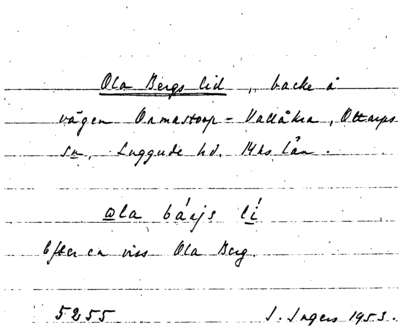 Ola Bergs lid, backe å
vägen Ormastorp - Vallåkra, Ottarps
sn, Luggude hd. Mhs län.
ola bárjs lí
Efter en viss Ola Berg.
5255 I. Ingers 1953.